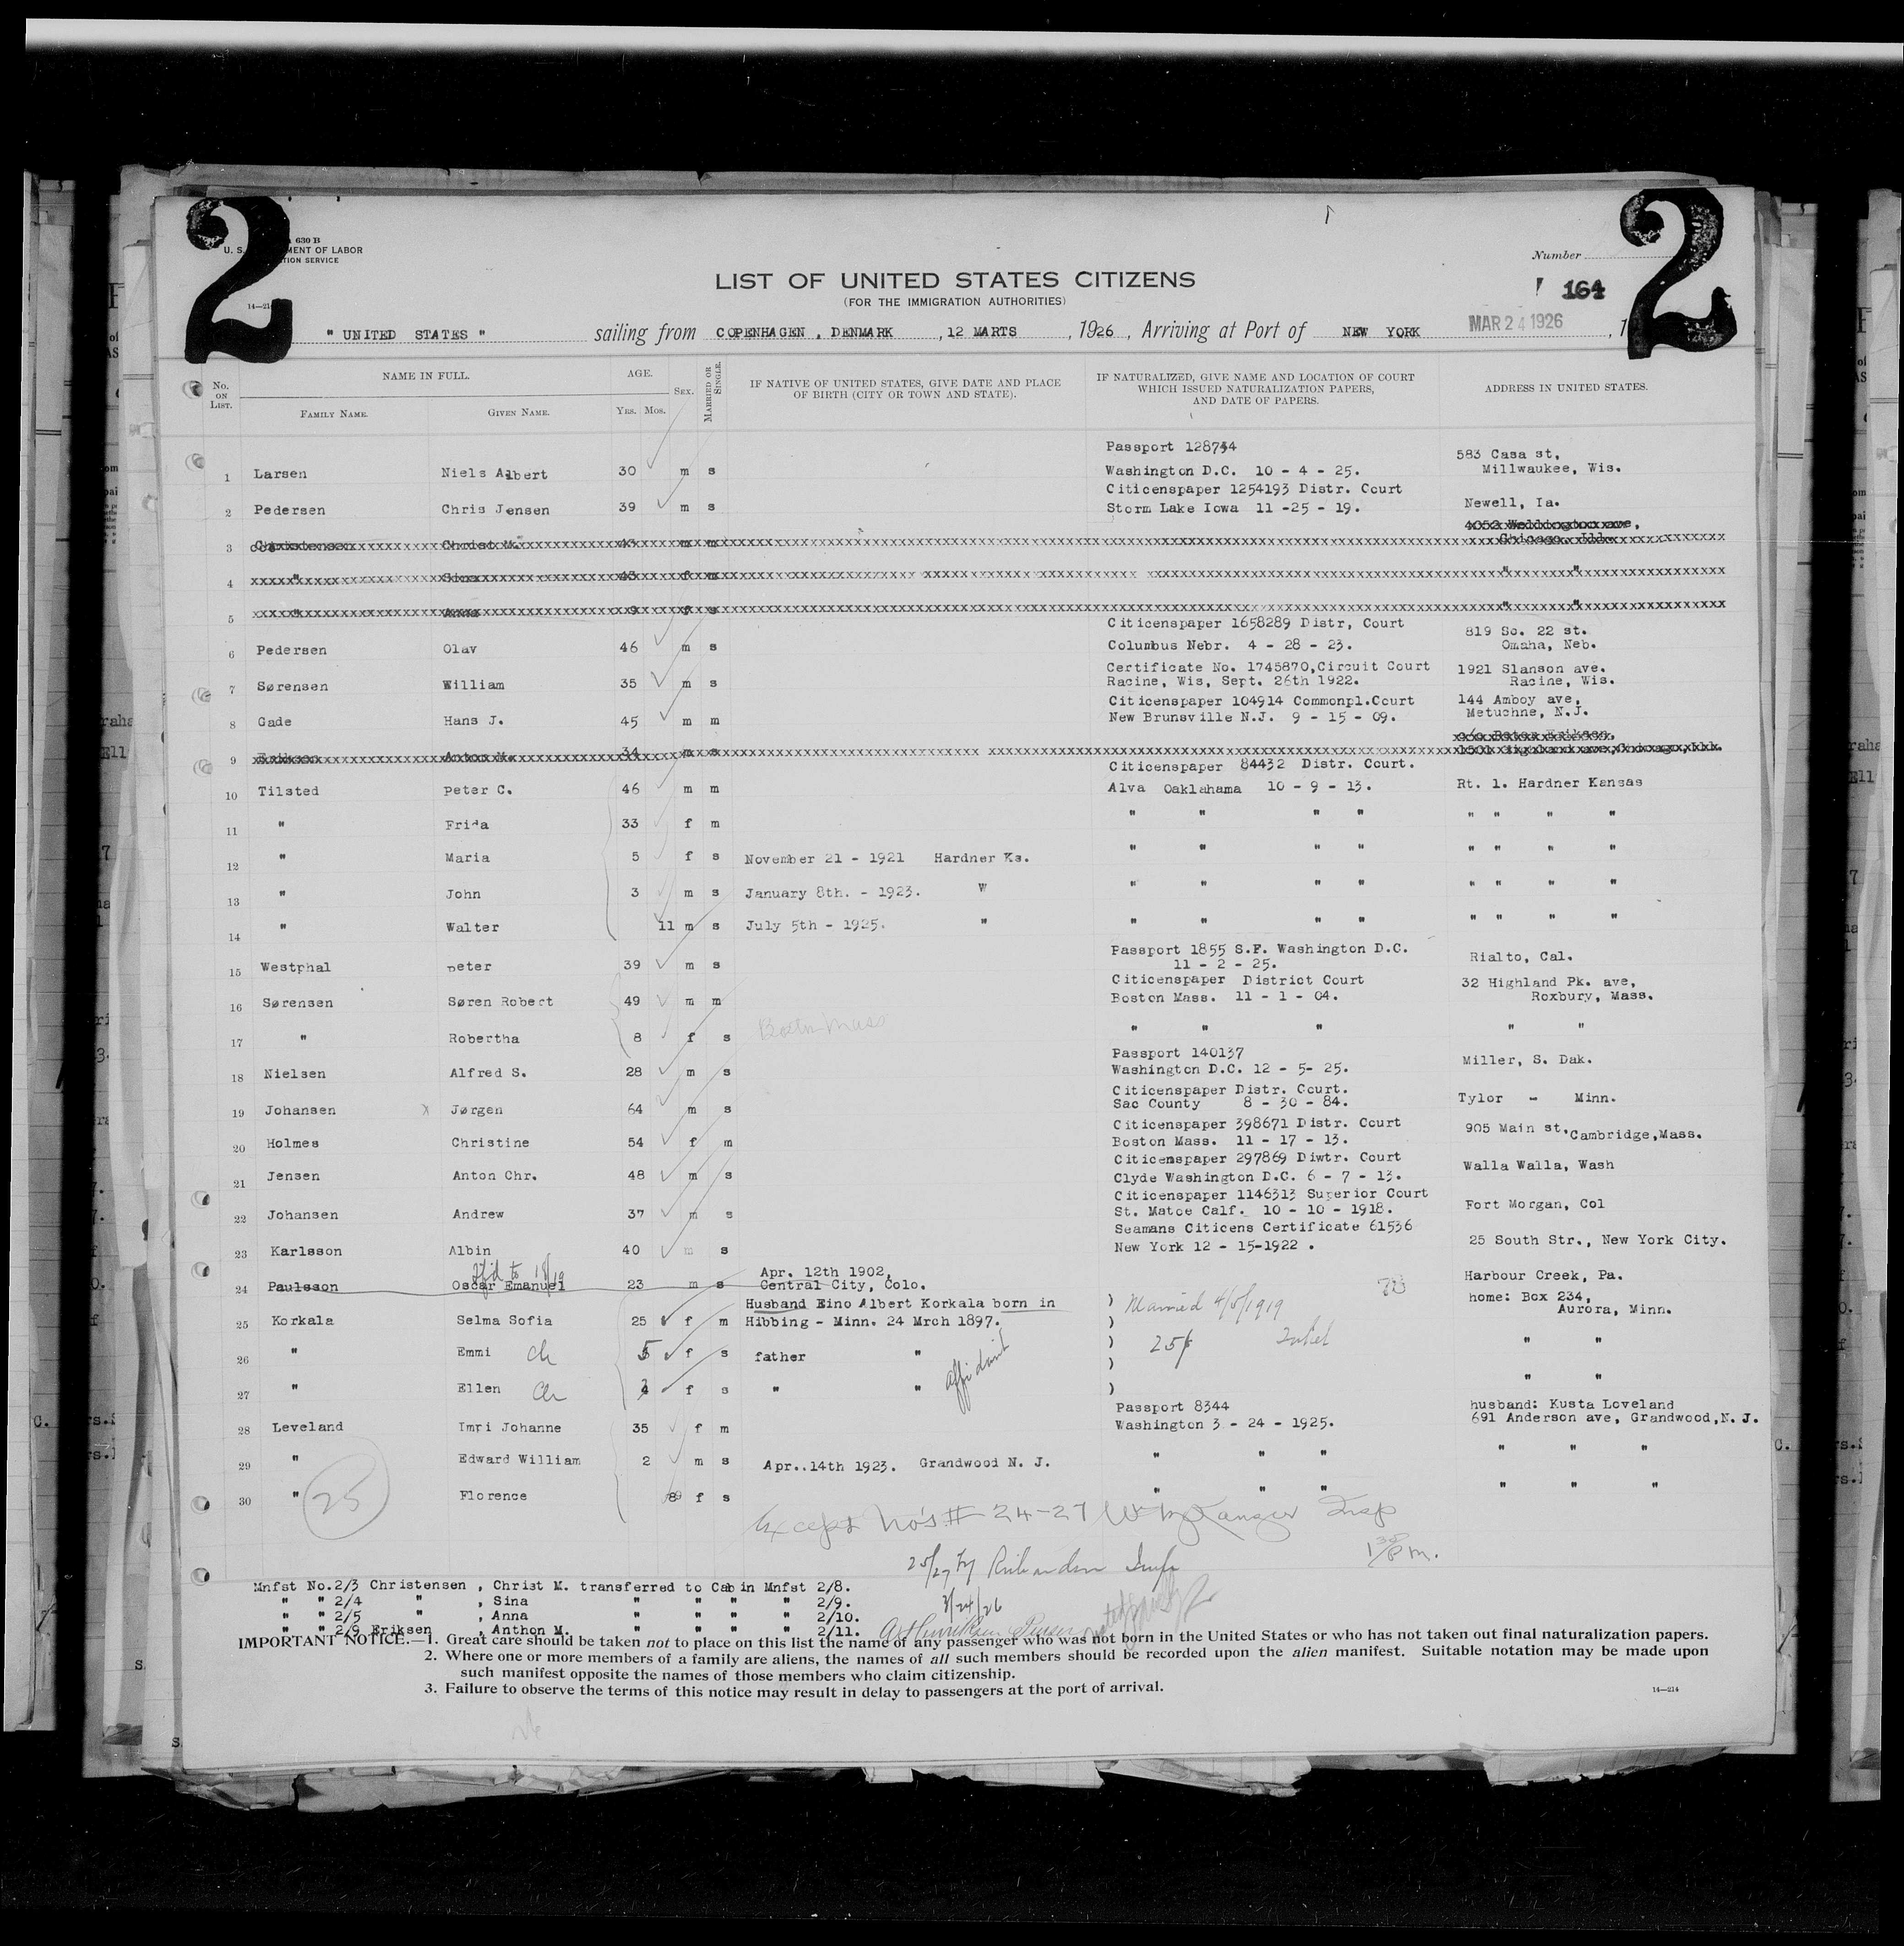 2 2
630 B
U. S. MENT OF LABOR
TION SERVICE
Number
164
LIST OF UNITED STATES CITIZENS
(FOR THE IMMIGRATION AUTHORITIES)
" UNITED STATES " sailing from COPENHAGEN , DENMARK , 12 MARTS , 1926 , Arriving at Port of NEW YORK MAR 24 1926 , 1
No. ON LIST. NAME IN FULL. FAMILY NAME. GIVEN NAME. AGE. YRS. MOS. SEX. MARRIED OR SINGLE. IF NATIVE OF UNITED STATES, GIVE DATE AND PLACE OF BIRTH (CITY OR TOWN AND STATE). IF NATURALIZED, GIVE NAME AND LOCATION OF COURT WHICH ISSUED NATURALIZATION PAPERS, AND DATE OF PAPERS. ADDRESS IN UNITED STATES.
Passport 128734 583 Casa st,
1 Larsen Niels Albert 30 m s Washington D.C. 10 - 4 - 25. Millwaukee, Wis.
Citicenspaper 1254193 Distr. Court
2 Pedersen Chris Jensen 39 m s Storm Lake Iowa 11 -25 - 19. Newell, Ia.
3 Christensen Christ M. 43 m m Chicago, Ill.
4 " Sina 43 f m " "
5 " Anna 9 f s " "
Citicenspaper 1658289 Distr, Court 819 So. 22 st.
6 Pedersen Olav 46 m s Columbus Nebr. 4 - 28 - 23. Omaha, Neb.
Certificate No. 1745870,Circuit Court 1921 Slanson ave.
7 Sørensen William 35 m s Racine, Wis, Sept. 26th 1922. Racine, Wis.
Citicenspaper 104914 Commonpl.Court 144 Amboy ave,
8 Gade Hans J. 45 m m New Brunsville N.J. 9 - 15 - 09. Metuchne, N.J.
c/o Peter Eriksen,
9 Eriksen Anton M. 34 m s
Citicenspaper 84432 Distr. Court.
10 Tilsted Peter C. 46 m m Alva Oaklahama 10 - 9 - 13. Rt. 1. Hardner Kansas
11 " Frida 33 f m " " " " " " " "
12 " Maria 5 f s November 21 - 1921 Hardner Ks. " " " " " " " "
13 " John 3 m s January 8th. - 1923. " " " " " " " " "
14 " Walter 11 m s July 5th - 1925. " " " " " " " " "
Passport 1855 S.F. Washington D.C.
15 Westphal Peter 39 m s 11 - 2 - 25. Rialto, Cal.
Citicenspaper District Court 32 Highland Pk. ave,
16 Sørensen Søren Robert 49 m m Boston Mass. 11 - 1 - 04. Roxbury, Mass.
17 " Robertha 8 f s Boston Mass " " " " "
Passport 140137
18 Nielsen Alfred S. 28 m s Washington D.C. 12 - 5- 25. Miller, S. Dak.
Citicenspaper Distr. Court.
19 Johansen x Jørgen 64 m s Sac County 8 - 30 - 84. Tylor - Minn.
Citicenspaper 398671 Distr. Court
20 Holmes Christine 54 f m Boston Mass. 11 - 17 - 13. 905 Main st,Cambridge,Mass.
Citicenspaper 297869 Diwtr. Court
21 Jensen Anton Chr. 48 m s Clyde Washington D.C. 6 - 7 - 13. Walla Walla, Wash
Citicenspaper 1146313 Superior Court
22 Johansen Andrew 37 m s St. Matoe Calf. 10 - 10 - 1918. Fort Morgan, Col
Seamans Citicens Certificate 61536
23 Karlsson Albin 40 m s New York 12 - 15-1922 . 25 South Str., New York City.
Apr. 12th 1902,
24 Paulsson Oscar Emanuel 23 m s Central City, Colo. Harbour Creek, Pa.
Husband Eino Albert Korkala born in ) Married 4/5/1919 home: Box 234,
25 Korkala Selma Sofia 25 f m Hibbing - Minn. 24 Mrch 1897. ) Aurora, Minn.
26 " Emmi Ch 5 f s father " ) " "
27 " Ellen Ch 4 f s " " affidavit ) " "
Passport 8344 husband: Kusta Loveland
28 Leveland Imri Johanne 35 f m Washington 3 - 24 - 1925. 691 Anderson ave, Grandwood,N.J.
29 " Edward William 2 m s Apr..14th 1923. Grandwood N. J. " " " " " "
30 " Florence 8 f s " " " " " "
25
Except No's # 24-27
25/27 by Richardson Insp
3/24/26
1 30 P.m.
Mnfst No.2/3 Christensen , Christ M. transferred to Cabin Mnfst 2/8.
" " 2/4 " , Sina " " " " 2/9.
" " 2/5 " , Anna " " " " 2/10.
" " 2/9 Eriksen , Anthon M. " " " " 2/11.
IMPORTANT NOTICE.—1. Great care should be taken not to place on this list the name of any passenger who was not born in the United States or who has not taken out final naturalization papers.
2. Where one or more members of a family are aliens, the names of all such members should be recorded upon the alien manifest. Suitable notation may be made upon
such manifest opposite the names of those members who claim citizenship.
3. Failure to observe the terms of this notice may result in delay to passengers at the port of arrival.
14—214